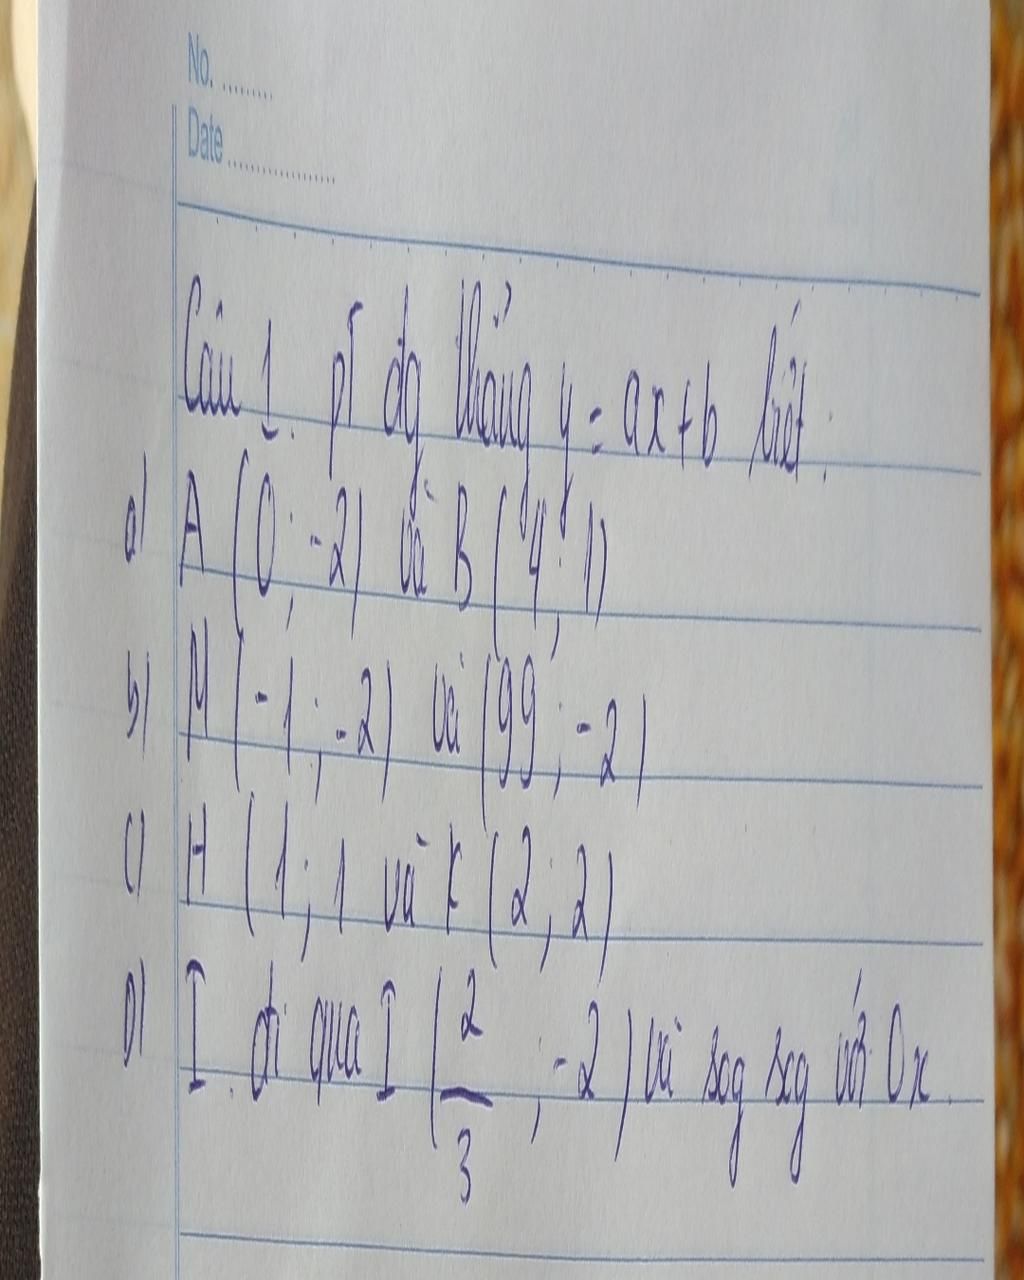 No. ........
Date ................
Câu 1. pT đg thẳng y = ax + b biết:
a) A (0; -2) và B (4; 1)
b) M (-1; -2) và (99; -2)
c) H (1; 1 và K (2; 2)
D) I. đi qua I (2/3; -2) và sog sog với Ox.